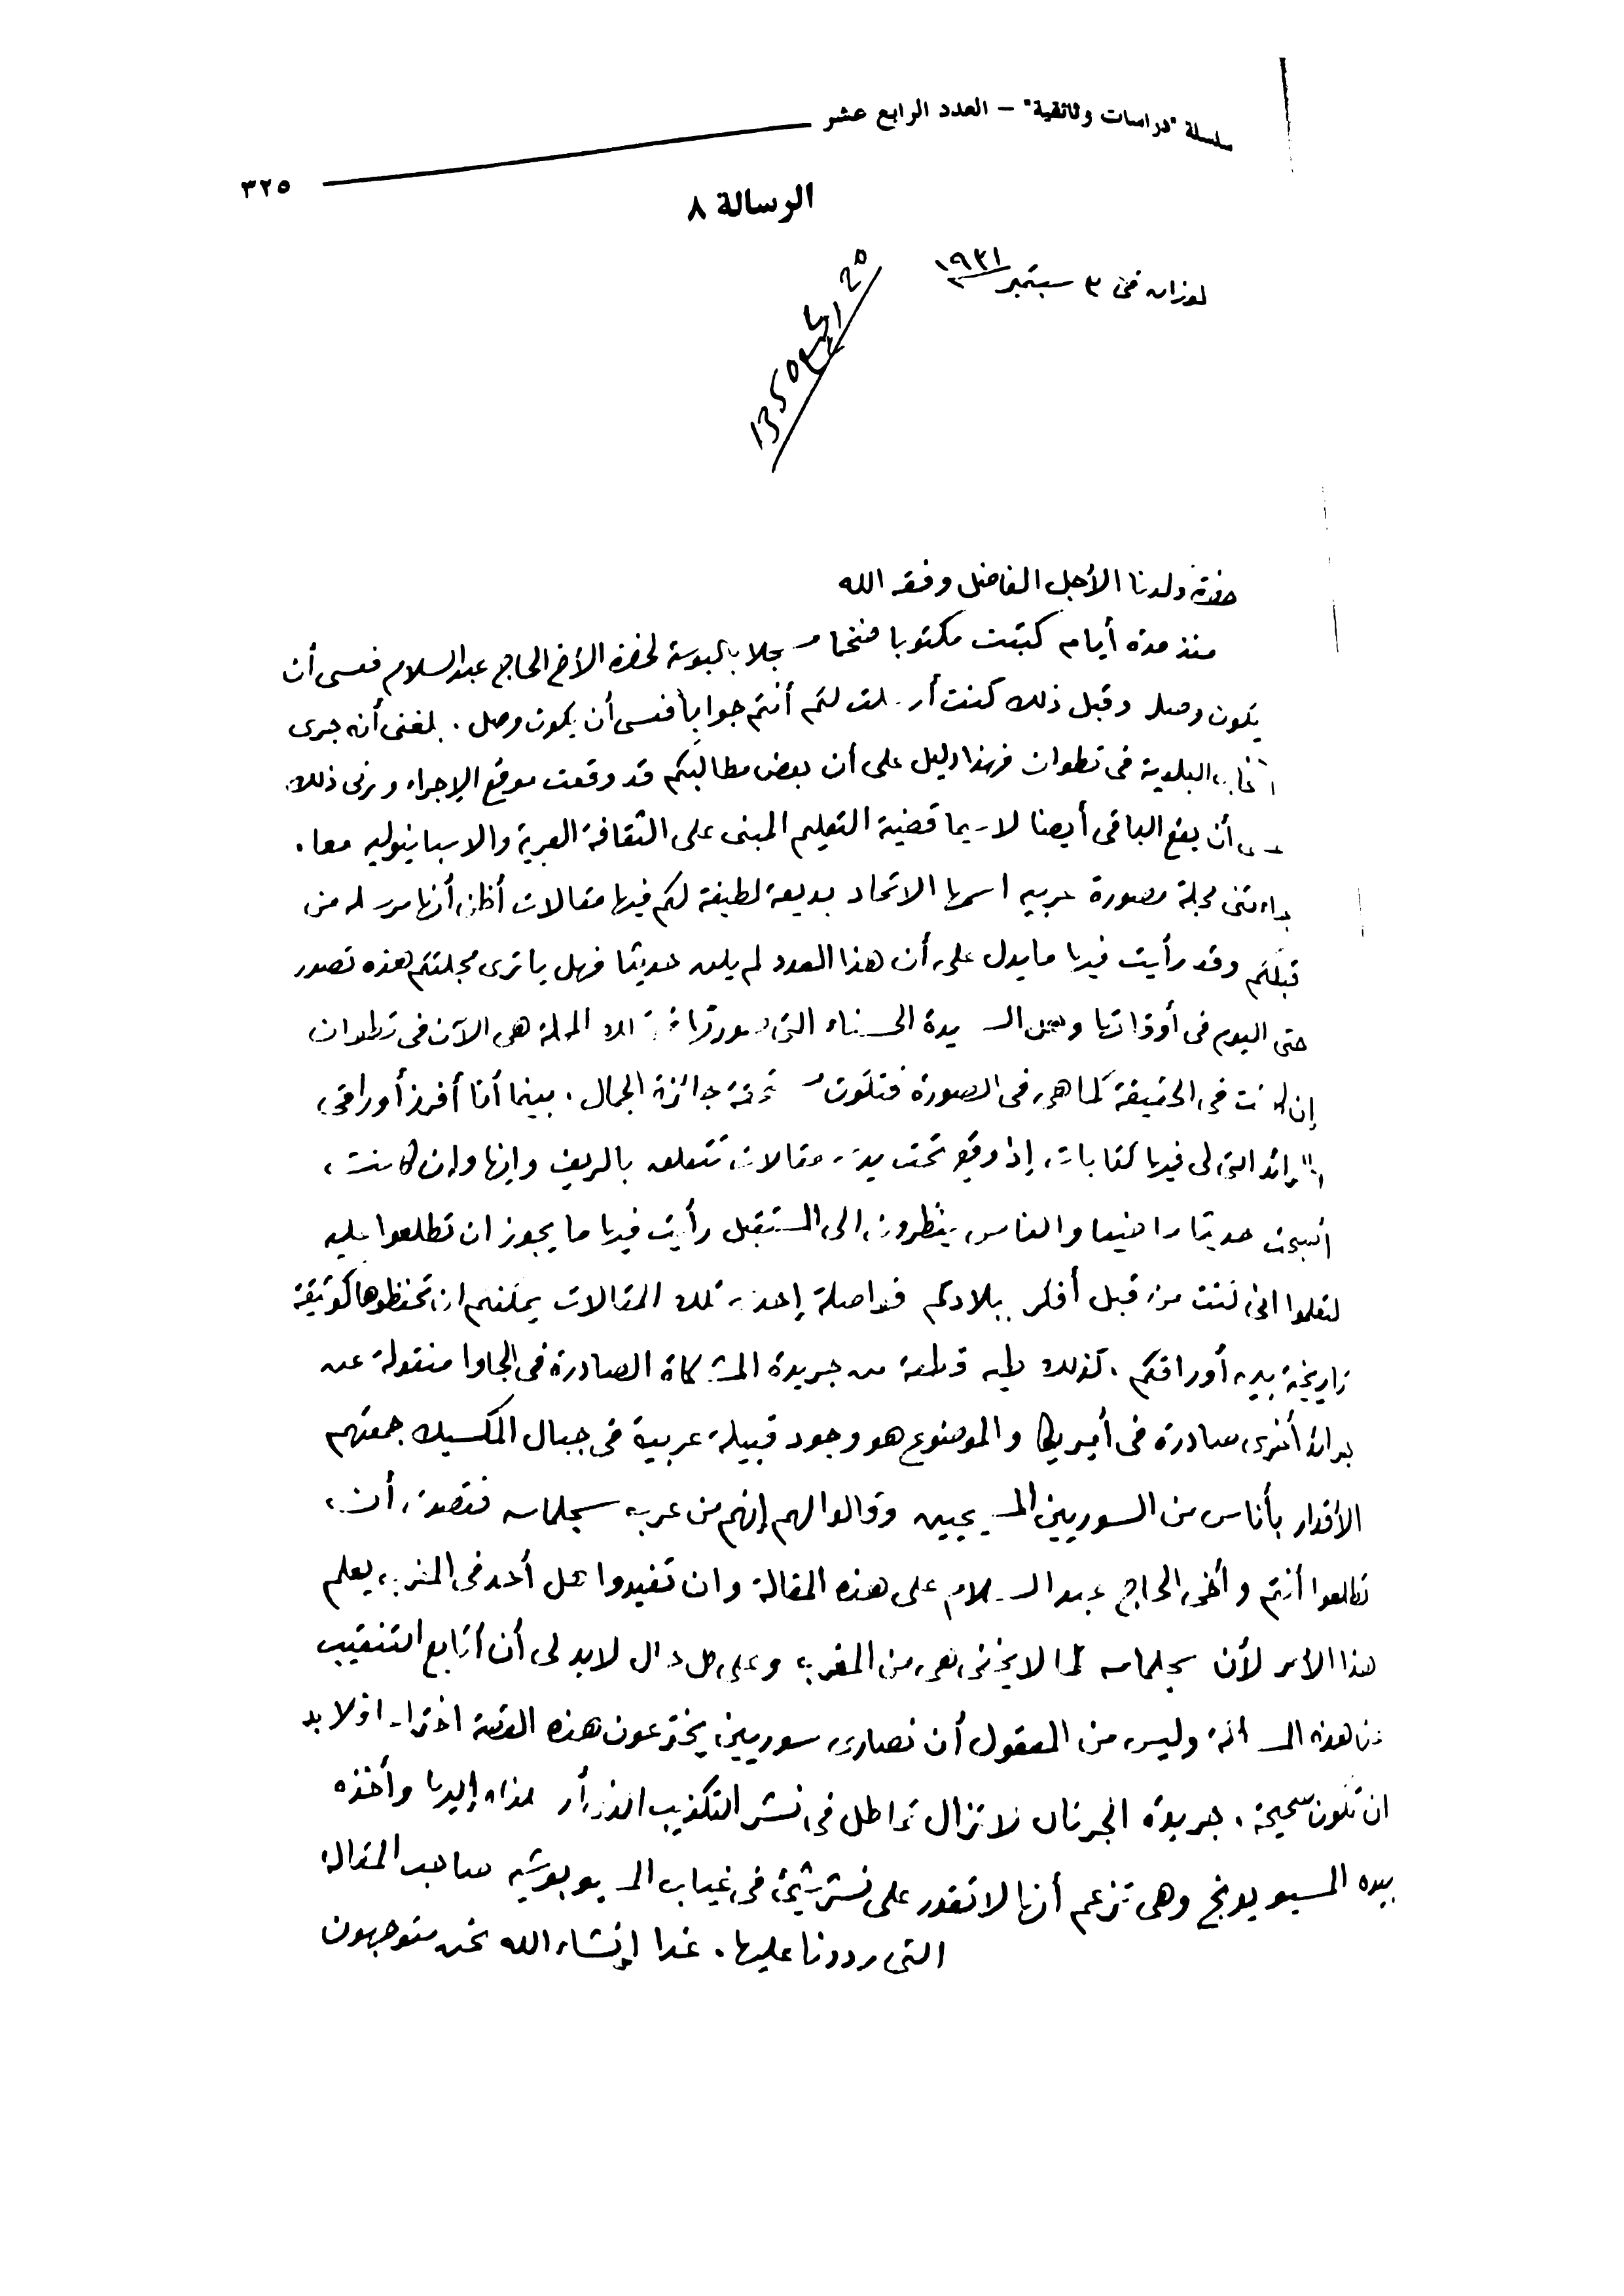 سلسلة "دراسات وثائقية" – العدد الرابع عشر
٣٢٥
الرسالة ٨
لوزان فى ٣ سبتمبر ١٩٣١
20 ربيع 1350
حضرة ولدنا الأجل الفاضل وفقه الله
منذ مدة أيام كتبت مكتوبا ضخما مسجلا بالبوسته لحضرة الأخ الحاج عبد السلام فعسى أن
يكون وصله وقبل ذلك كنت أرسلت لكم أنتم جوابا فعسى أن يكون وصل . بلغنى أنه جرى
البلدية فى تطوان فهذا دليل على أن بعض مطالبكم قد وقعت موقع الإجراء و ذلك
عسى أن يقع الباقى أيضا لا سيما قضية التعليم المبنى على الثقافة العربية والاسبانيوليه معا .
جاءتنى مجلة مصورة عربيه اسمها الاتحاد بديعة لطيفة لكم فيها مقالات أظن أنها مرسله من
قبلكم وقد رأيت فيها ما يدل على أن هذا العدد لم يكن حديثا فهل يا ترى مجلتكم هذه تصدر
حتى اليوم فى أوقاتها وهل السيدة الحسناء التى صورتها فى تلك المجلة هى الآن فى تطوان
إن كانت فى الحقيقة كما هى فى الصورة فتكون مستحقة جائزة الجمال . بينما أنا أفرز أوراقى
الجرائد التى لى فيها كتابات إذ وقع تحت يدى مقالات تتعلق بالريف وانها وان كانت
أصبحت حديثا ماضيا والناس ينظرون الى المستقبل رأيت فيها ما يجوز ان تطلعوا عليه
لتعلموا انى كنت من قبل أفكر ببلادكم فواصلة إحدى تلك المقالات يمكنكم ان تحفظوها كوثيقة
تاريخية بين أوراقكم . كذلك طيه قطعة من جريدة المشكاة الصادرة فى الجاوا منقولة عن
جرائد أخرى صادرة فى أميريكا والموضوع هو وجود قبيلة عربية فى جبال المكسيك جمعتهم
الأقدار بأناس من السوريين المسيحيين وقالوا لهم إنهم من عرب سجلماسه فقصدى أن
تطلعوا أنتم وأخى الحاج عبد السلام على هذه المقالة وان تفيدوا هل أحد فى المغرب يعلم
هذا الأمر لأن سجلماسه كما لا يخفى هى من المغرب وعلى كل حال لا بد لى أن أتابع التنقيب
عن هذه المسألة وليس من المعقول أن نصارى سوريين يخترعون هذه القصة اختراعا فلا بد
ان تكون صحيحة . جريدة الجرنال لا تزال تماطل فى نشر التكذيب الذى أرسلناه إليها وأخذه
بيده المسيو يونج وهى تزعم أنها لا تقدر على نشر شىء فى غياب المسيو صاحب المقالة
التى رددنا عليها . غدا إنشاء الله نحن متوجهون